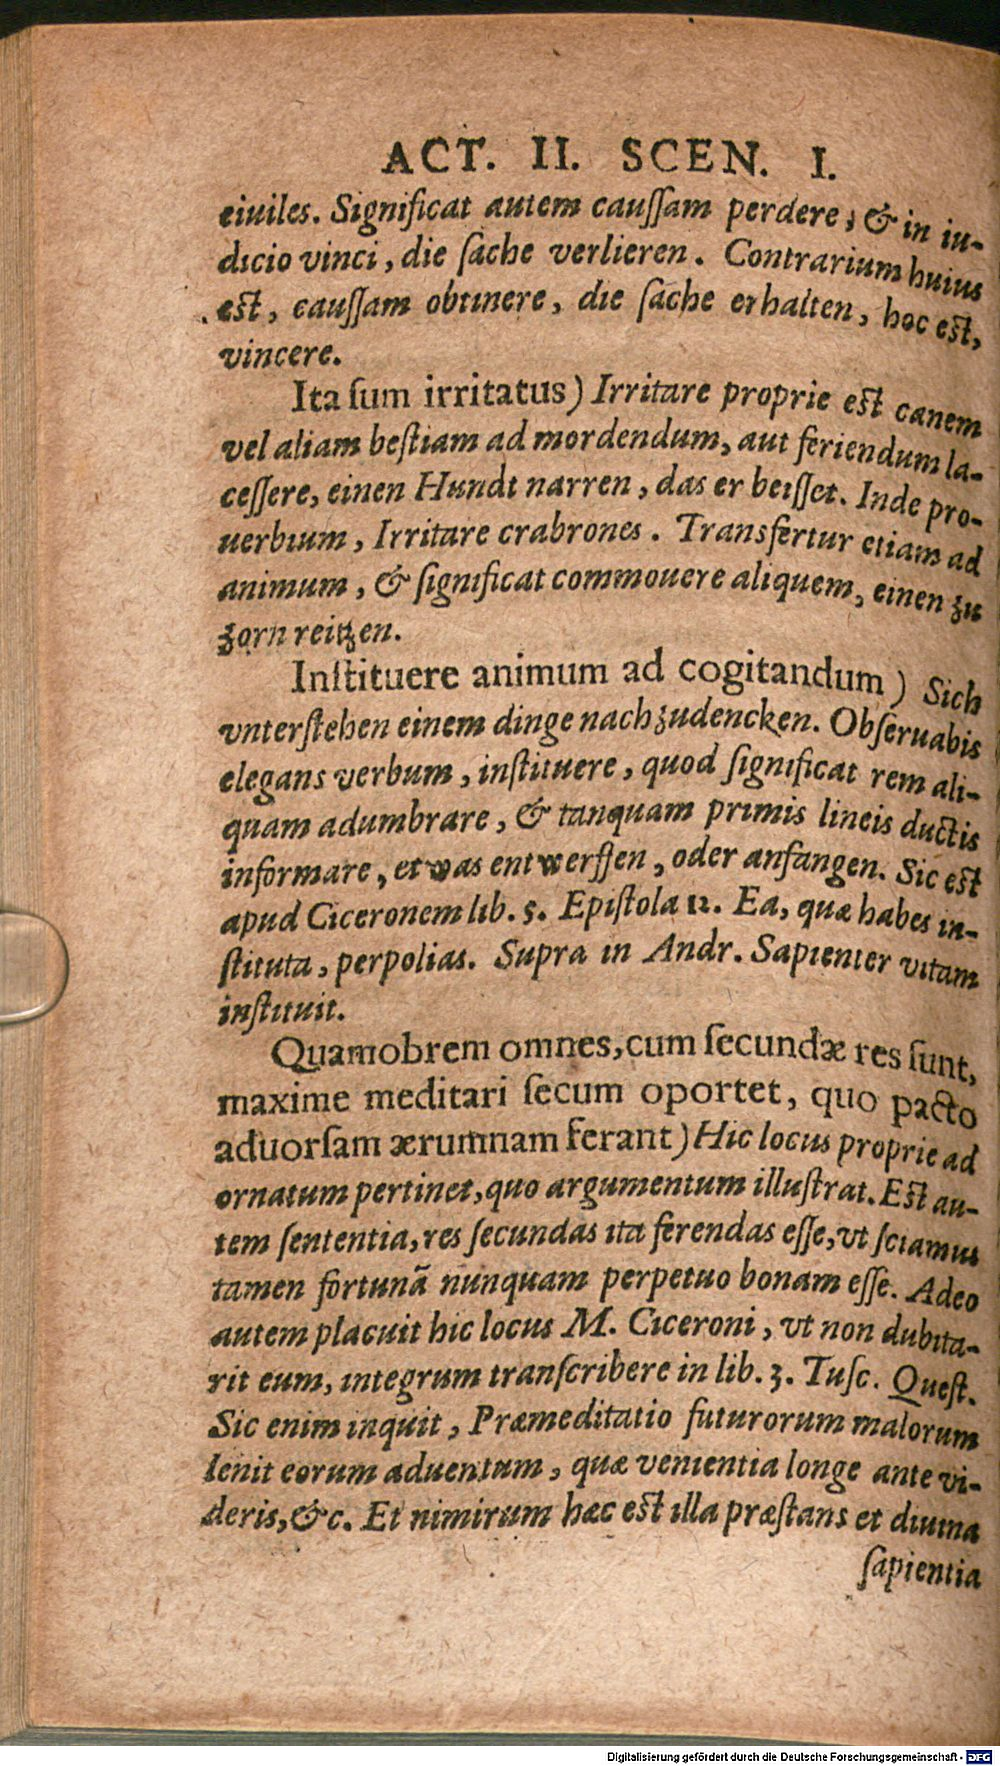 ACT. II. SCEN. I.
ciuiles. Significat autem cauſſam perdere, & in iu-
dicio vinci, die ſache verlieren. Contrarium huius
est, cauſſam obtinere, die ſache erhalten, hoc est,
vincere.
Ita ſum irritatus) Irritare proprie est canem
vel aliam beſtiam ad mordendum, aut feriendum la-
ceſſere, einen Hundt narren, das er beiſſet. Inde pro-
uerbium, Irritare crabrones. Transfertur etiam ad
animum, & ſignificat commouere aliquem, einen zu
zorn reitzen.
Inſtituere animum ad cogitandum) Sich
vnterſtehen einem dinge nachzudencken. Obſeruabis
elegans verbum, inſtituere, quod ſignificat rem ali-
quam adumbrare, & tanquam primis lineis ductis
informare, etwas entwerffen, oder anfangen. Sic est
apud Ciceronem lib. 5. Epiſtola 12. Ea, quæ habes in-
ſtituta, perpolias. Supra in Andr. Sapienter vitam
inſtituit.
Quamobrem omnes, cum ſecundæ res ſunt,
maxime meditari ſecum oportet, quo pacto
aduorſam ærumnam ferant) Hic locus proprie ad
ornatum pertinet, quo argumentum illuſtrat. Est au-
tem ſententia, res ſecundas ita ferendas eſſe, vt ſciamus
tamen fortunã nunquam perpetuo bonam eſſe. Adeo
autem placuit hic locus M. Ciceroni, vt non dubita-
rit eum, integrum tranſcribere in lib. 3. Tuſc. Queſt.
Sic enim inquit, Præmeditatio futurorum malorum
lenit eorum aduentum, quæ venientia longe ante vi-
deris, &c. Et nimirum hæc est illa præſtans et diuina
ſapientia
Digitalisierung gefördert durch die Deutsche Forschungsgemeinschaft - DFG